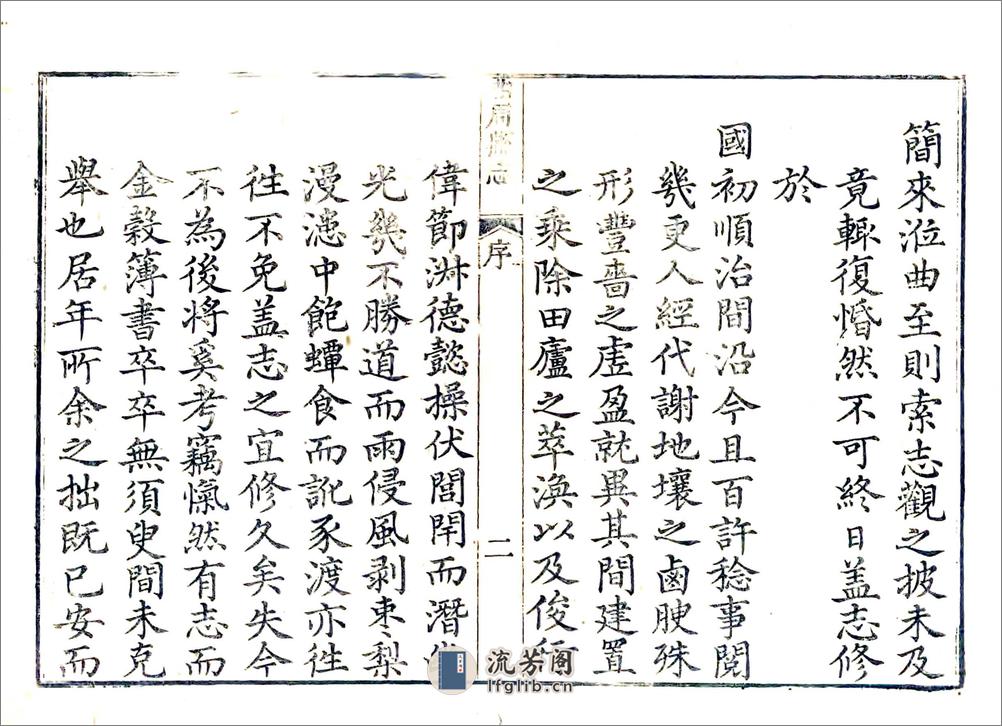 簡來涖曲至則索志觀之披未及
竟輙復惛然不可終日盖志修
於
國初順治間沿今且百許稔事閱
幾更人經代謝地壤之鹵腴殊
形豐嗇之虗盈就異其間建置
之乗除田廬之萃渙以及俊
縣志
序
二
偉節淋德懿操伏閭閈而潛
光幾不勝道而雨侵風剥棗梨
漫漶中飽蟫食而訛豕渡亦徃
徃不免盖志之宜修久矣失今
不為後將奚考竊愾然有志而
金穀簿書卒卒無須臾間未克
舉也居年所余之拙既已安而
流芳阁
lfglib.cn